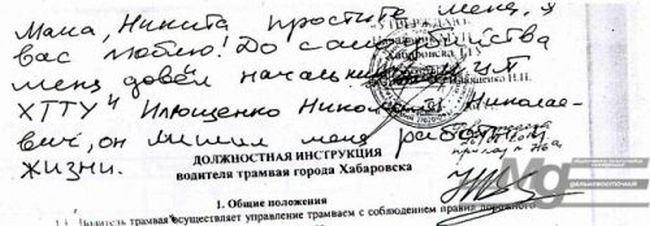 Мама, Никита простите меня, я
вас люблю! До самоубийства
меня довёл начальник
ХТТУ" Илющенко Николай Николае-
вич, он лишил меня работы и
жизни.
УТВЕРЖДАЮ:
Хабаровска
Илющенко Н.Н.
ДОЛЖНОСТНАЯ ИНСТРУКЦИЯ
водителя трамвая города Хабаровска
1. Общие положения
1.1. Водитель трамвая осуществляет управление трамваем с соблюдением правил дорожного
Mg
ДАЛЬНЕВОСТОЧНАЯ